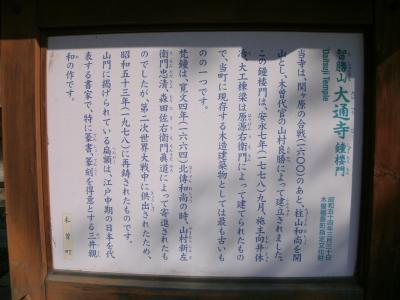 智勝山 大通寺 鐘楼門
Daitsuji Temple
昭和五十四年三月三十日
木曽福島町指定文化財
当寺は、関ヶ原の合戦(一六〇〇)のあと、桂山和尚を開
山とし、木曽代官の山村良勝によって建立されました。
この鐘楼門は、安永七(一七七八)九月、施主向井休
清、大工棟梁は原源右衛門によって建てられたもの
で、当町に現存する木造建築物としては最も古いも
のの一つです。
梵鐘は、寛文四年(一六六四)北傳和尚の時、山村新左
衛門忠清、森田佐右衛門眞道によって寄進されたも
のでしたが、第二次世界大戦中に供出されたため、
昭和五十三年(一九七八)に再鋳されたものです。
山門に掲げられている扁額は、江戸中期の日本を代
表する書家で、特に篆書、篆刻を得意とする三井親
和の作です。
木曽町